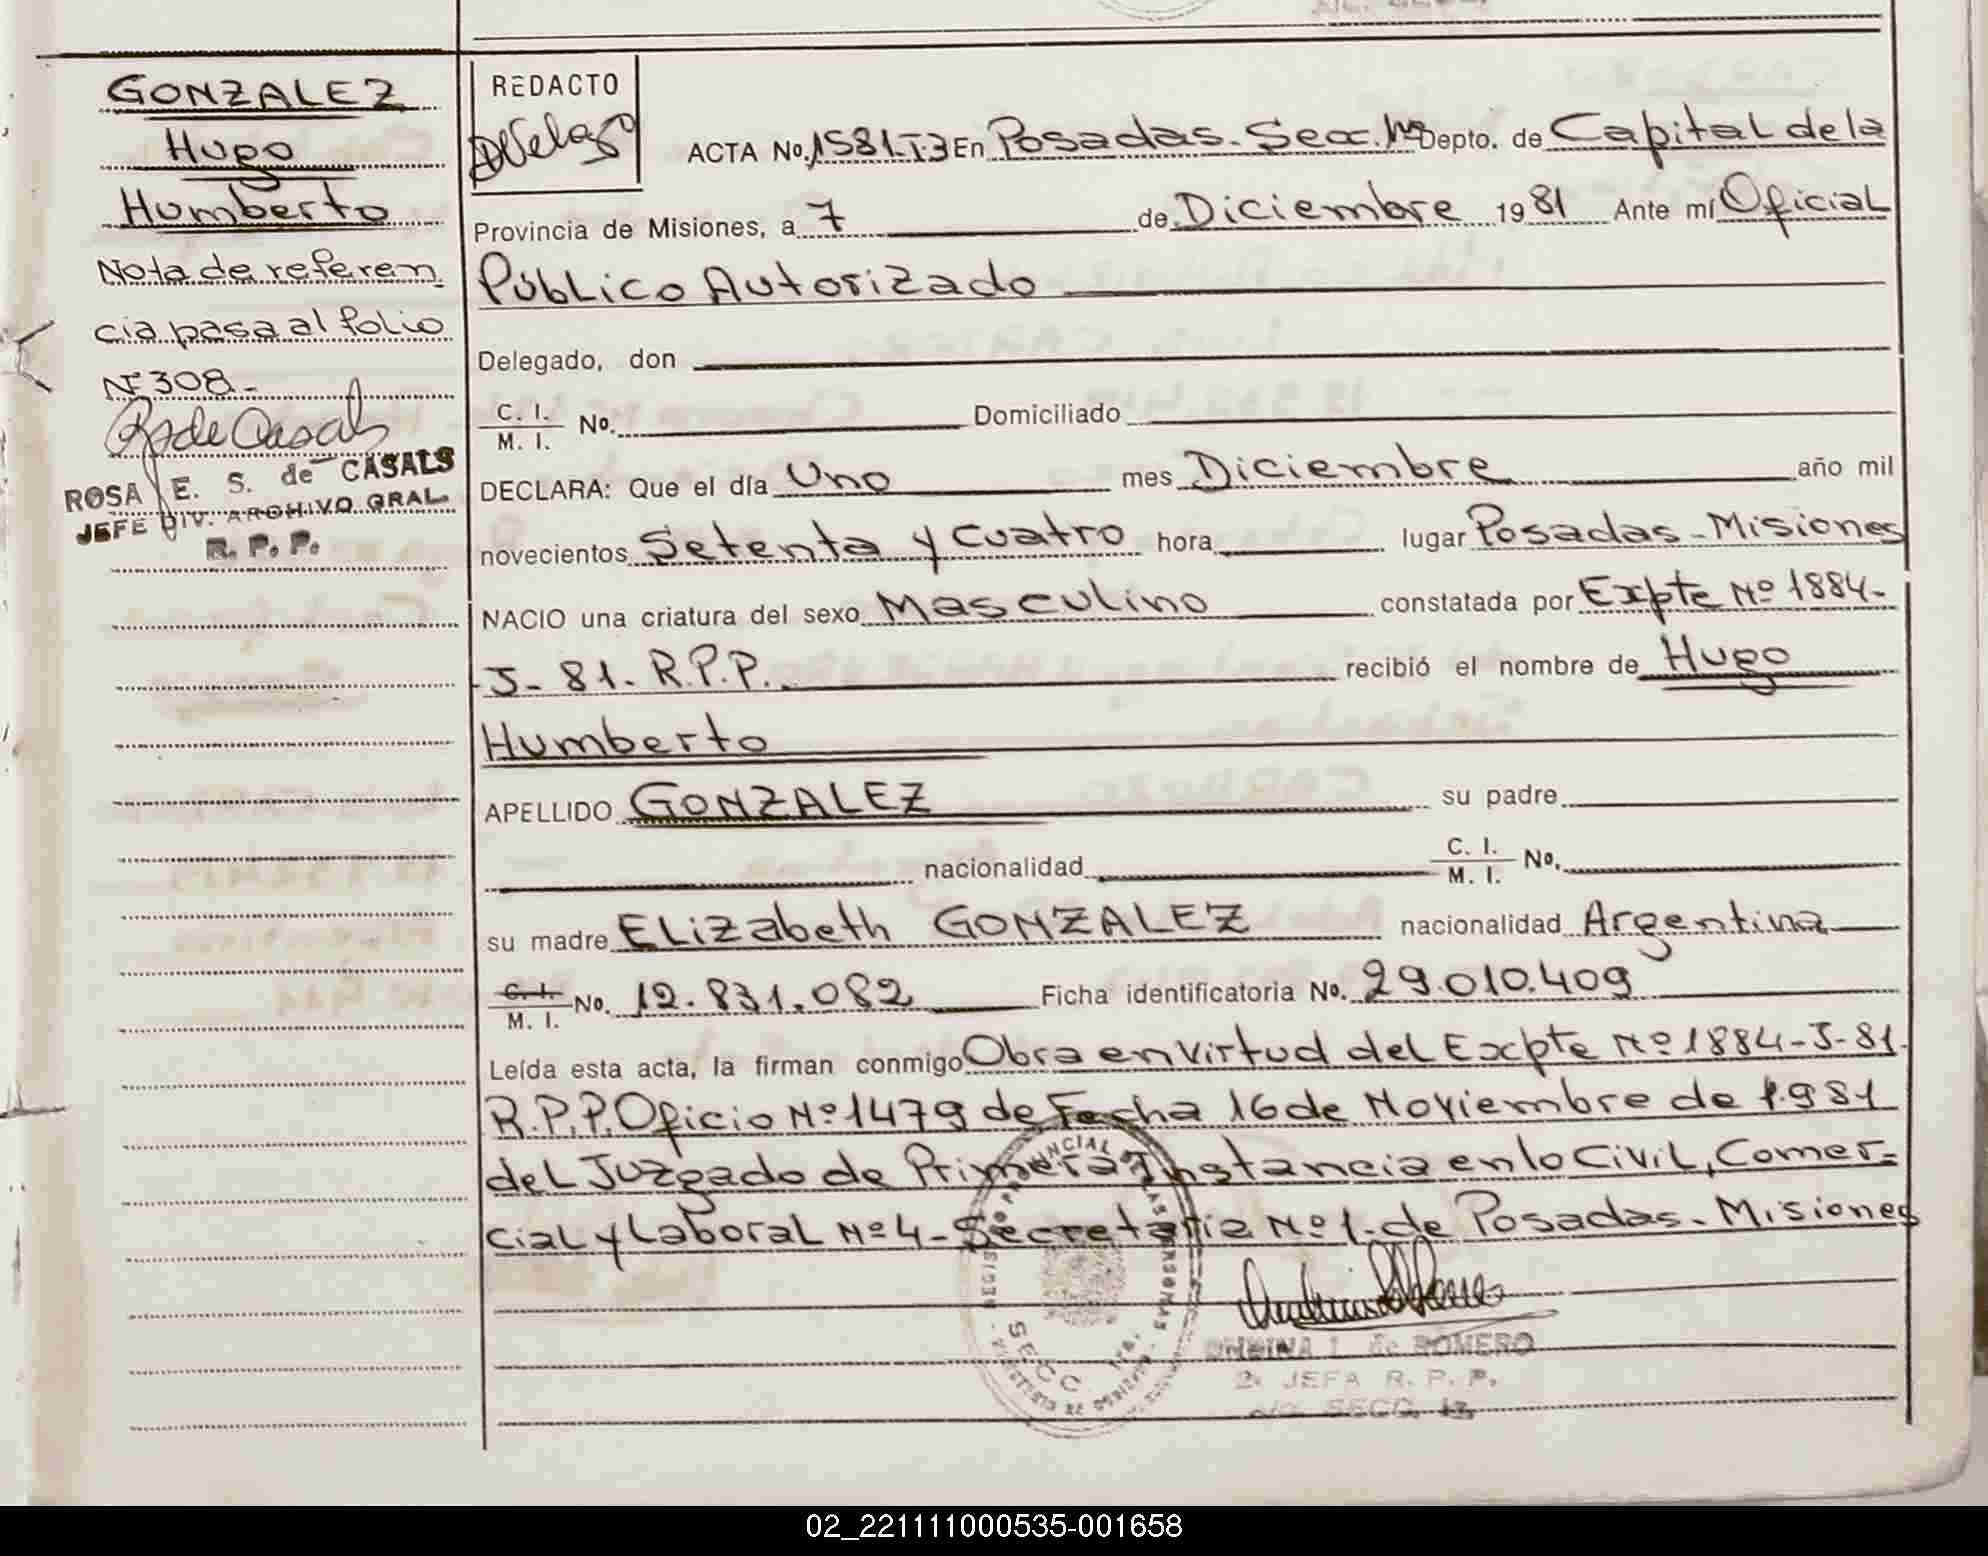 GONZALEZ
Hugo
Humberto
Nota de referen
cia pasa al folio
Nº 308.-
ROSA E. S. de CASALS
JEFE DIV. ARCHIVO GRAL.
R. P. P.
REDACTO
ACTA No. 1581-T3 En Posadas. Secc. 1ra Depto. de Capital de la
Provincia de Misiones, a 7 de Diciembre 19 81 Ante mí Oficial
Público Autorizado
Delegado, don
C. I.
M. I. No. Domiciliado
DECLARA: Que el día Uno mes Diciembre año mil
novecientos Setenta y Cuatro hora lugar Posadas - Misiones
NACIO una criatura del sexo Masculino constatada por Expte Nº 1884-
J- 81- R.P.P. recibió el nombre de Hugo
Humberto
APELLIDO GONZALEZ su padre
nacionalidad C. I.
M. I. No.
su madre ELizabeth GONZALEZ nacionalidad Argentina
C. I.
M. I. No. 12.831.082 Ficha identificatoria No. 29.010.409
Leída esta acta, la firman conmigo Obra en virtud del Expte Nº 1884-J-81.
R.P.P. Oficio Nº 1479 de Fecha 16 de Noviembre de 1.981
del Juzgado de Primera Instancia en lo Civil, Comer-
cial y Laboral Nº 4 - Secretaria Nº 1 - de Posadas - Misiones
SECC. 1ra.
L. de ROMERO
2ª JEFA R. P. P.
SECC.
02_221111000535-001658